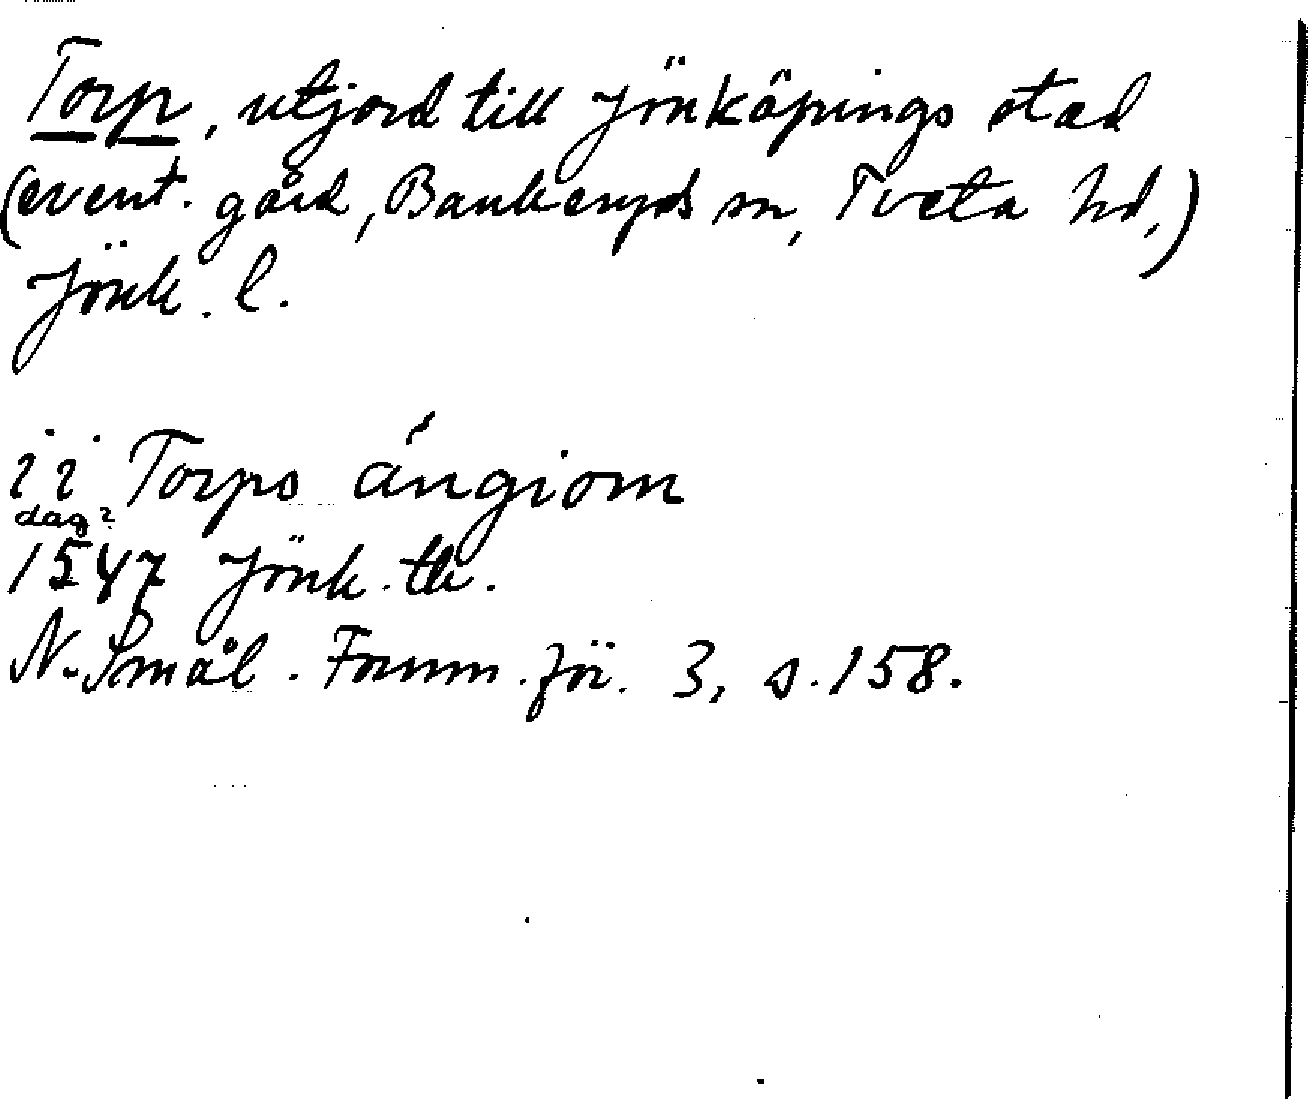 Torp, utjord till Jönköpings stad
(event. gård, Bankeryds sn, Tveta hd,)
Jönk. l.
i i Torps ángiom
dag?
1547 Jönk. tb.
N. Smål. Fornm. för. 3, s. 158.